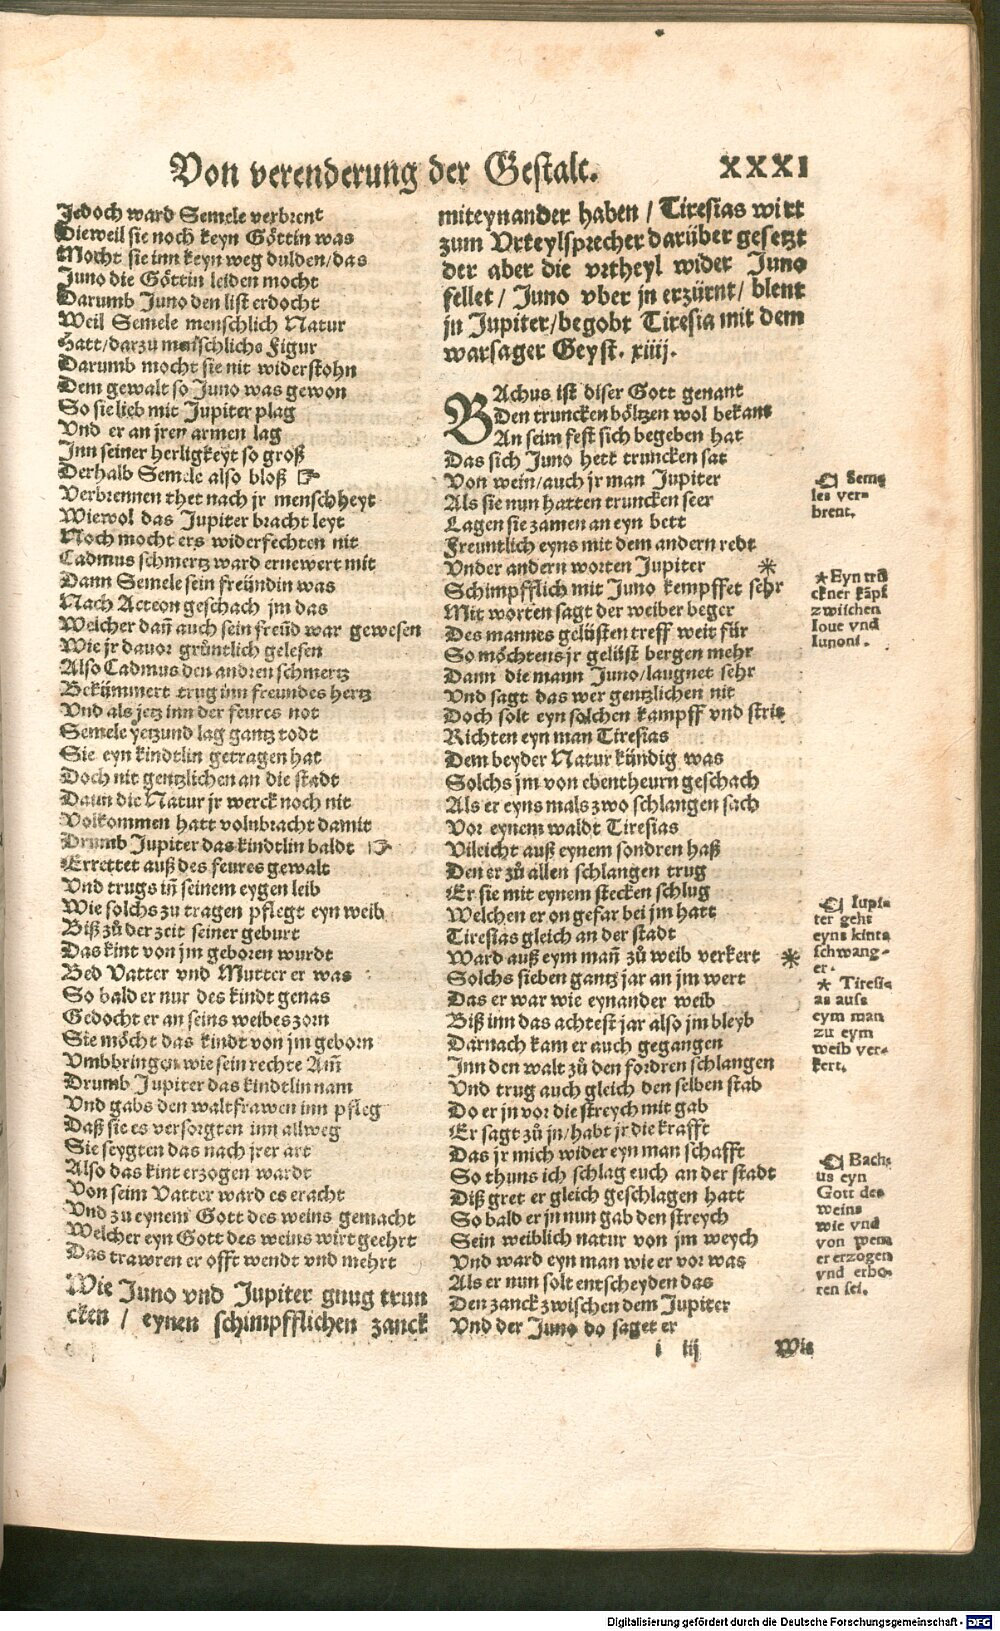 Von verenderung der Gestalt. XXXI
Jedoch ward Semele verbrent
Dieweil sie noch keyn Göttin was
Mocht sie inn keyn weg dulden/das
Juno die Göttin leiden mocht
Darumb Juno den list erdocht
Weil Semele menschlich Natur
Hatt/darzu menschliche Figur
Darumb mocht sie nit widerstohn
Dem gewalt so Juno was gewon
So sie lieb mit Jupiter plag
Vnd er an jren armen lag
Inn seiner herligkeyt so groß
Derhalb Semele also bloß ☞
Verbrennen thet nach jr menschheyt
Wiewol das Jupiter bracht leyt
Noch mocht ers widerfechten nit
Cadmus schmertz ward ernewert mit
Dann Semele sein freündin was
Nach Acteon geschach jm das
Welcher dañ auch sein freüd war gewesen
Wie jr dauor gründtlich gelesen
Also Cadmus den andren schmertz
Bekümmert trug inn freundes hertz
Vnd als jetz inn der feures not
Semele yetzund lag gantz todt
Sie eyn kindtlin getragen hat
Doch nit gentzlichen an die stadt
Dann die Natur jr werck noch nit
Volkommen hatt volnbracht damit
Drumb Jupiter das kindtlin baldt ☞
Errettet auß des feures gewalt
Vnd trugs iñ seinem eygen leib
Wie solchs zu tragen pflegt eyn weib
Biß zů der zeit seiner geburt
Das kint von jm geboren wurdt
Bed Vatter vnd Mutter er was
So bald er nur des kindt genas
Gedocht er an seins weibes zorn
Sie möcht das kindt von jm geborn
Vmbbringen wie sein rechte Am̃
Drumb Jupiter das kindtlin nam
Vnd gabs den waltfrawen inn pfleg
Daß sie es versorgten inn allweg
Sie seygten das nach jrer art
Also das kint erzogen wardt
Von seim Vatter ward es eracht
Vnd zu eynem Gott des weins gemacht
Welcher eyn Gott des weins wirt geehrt
Das trawren er offt wendt vnd mehrt
Wie Juno vnd Jupiter gnug trun
cken / eynen schimpfflichen zanck
miteynander haben / Tiresias wirt
zum Vrteylsprecher darüber gesetzt
der aber die vrtheyl wider Juno
fellet / Juno vber jn erzürnt / blent
jn Jupiter/begobt Tiresia mit dem
warsager Geyst. xiiij.
BAchus ist diser Gott genant
Den truncken böltzen wol bekant
An seim fest sich begeben hat
Das sich Juno hett truncken sat
Von wein/auch jr man Jupiter
Als sie nun hatten truncken seer
Lagen sie zamen an eyn bett
Freuntlich eyns mit dem andern redt
Vnder andern worten Jupiter *
Schimpfflich mit Juno kempffet sehr
Mit worten sagt der weiber beger
Des mannes gelüsten treff weit für
So möchtens jr gelüst bergen mehr
Dann die mann Juno/laugnet sehr
Vnd sagt das wer gentzlichen nit
Doch solt eyn solchen kampff vnd strit
Richten eyn man Tiresias
Dem beyder Natur kündig was
Solchs jm von ebentheurn geschach
Als er eyns mals zwo schlangen sach
Vor eynem waldt Tiresias
Vileicht auß eynem sondren haß
Den er zů allen schlangen trug
Er sie mit eynem stecken schlug
Welchen er on gefar bei jm hatt
Tiresias gleich an der stadt
Ward auß eym mañ zů weib verkert *
Solchs sieben gantz jar an jm wert
Das er war wie eynander weib
Biß inn das achtest jar also jm bleyb
Darnach kam er auch gegangen
Inn den walt zů den fordren schlangen
Vnd trug auch gleich den selben stab
Do er jn vor die streych mit gab
Er sagt zů jn/habt jr die krafft
Das jr mich wider eyn man schafft
So thuns ich schlag euch an der stadt
Diß gret er gleich geschlagen hatt
So bald er jn nun gab den streych
Sein weiblich natur von jm weych
Vnd ward eyn man wie er vor was
Als er nun solt entscheyden das
Den zanck zwischen dem Jupiter
Vnd der Juno do saget er
i iij Wie
¶ Seme
les ver-
brent.
* Eyn trũ
ckner kãpf
zwischen
Ioue vnd
Iunoni.
¶ Iupi-
ter geht
eyns kints
schwang-
er.
* Tiresi-
as auss
eym man
zu eym
weib ver-
kert.
¶ Bach-
us eyn
Gott des
weins
wie vnd
von wem
er erzogen
vnd erbo-
ren sei.
Digitalisierung gefördert durch die Deutsche Forschungsgemeinschaft - DFG